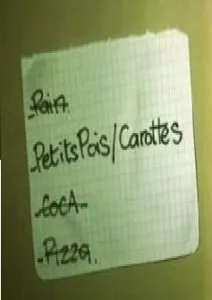 -Pain.
-Petits Pois/Carottes
-COCA-
-Pizza.